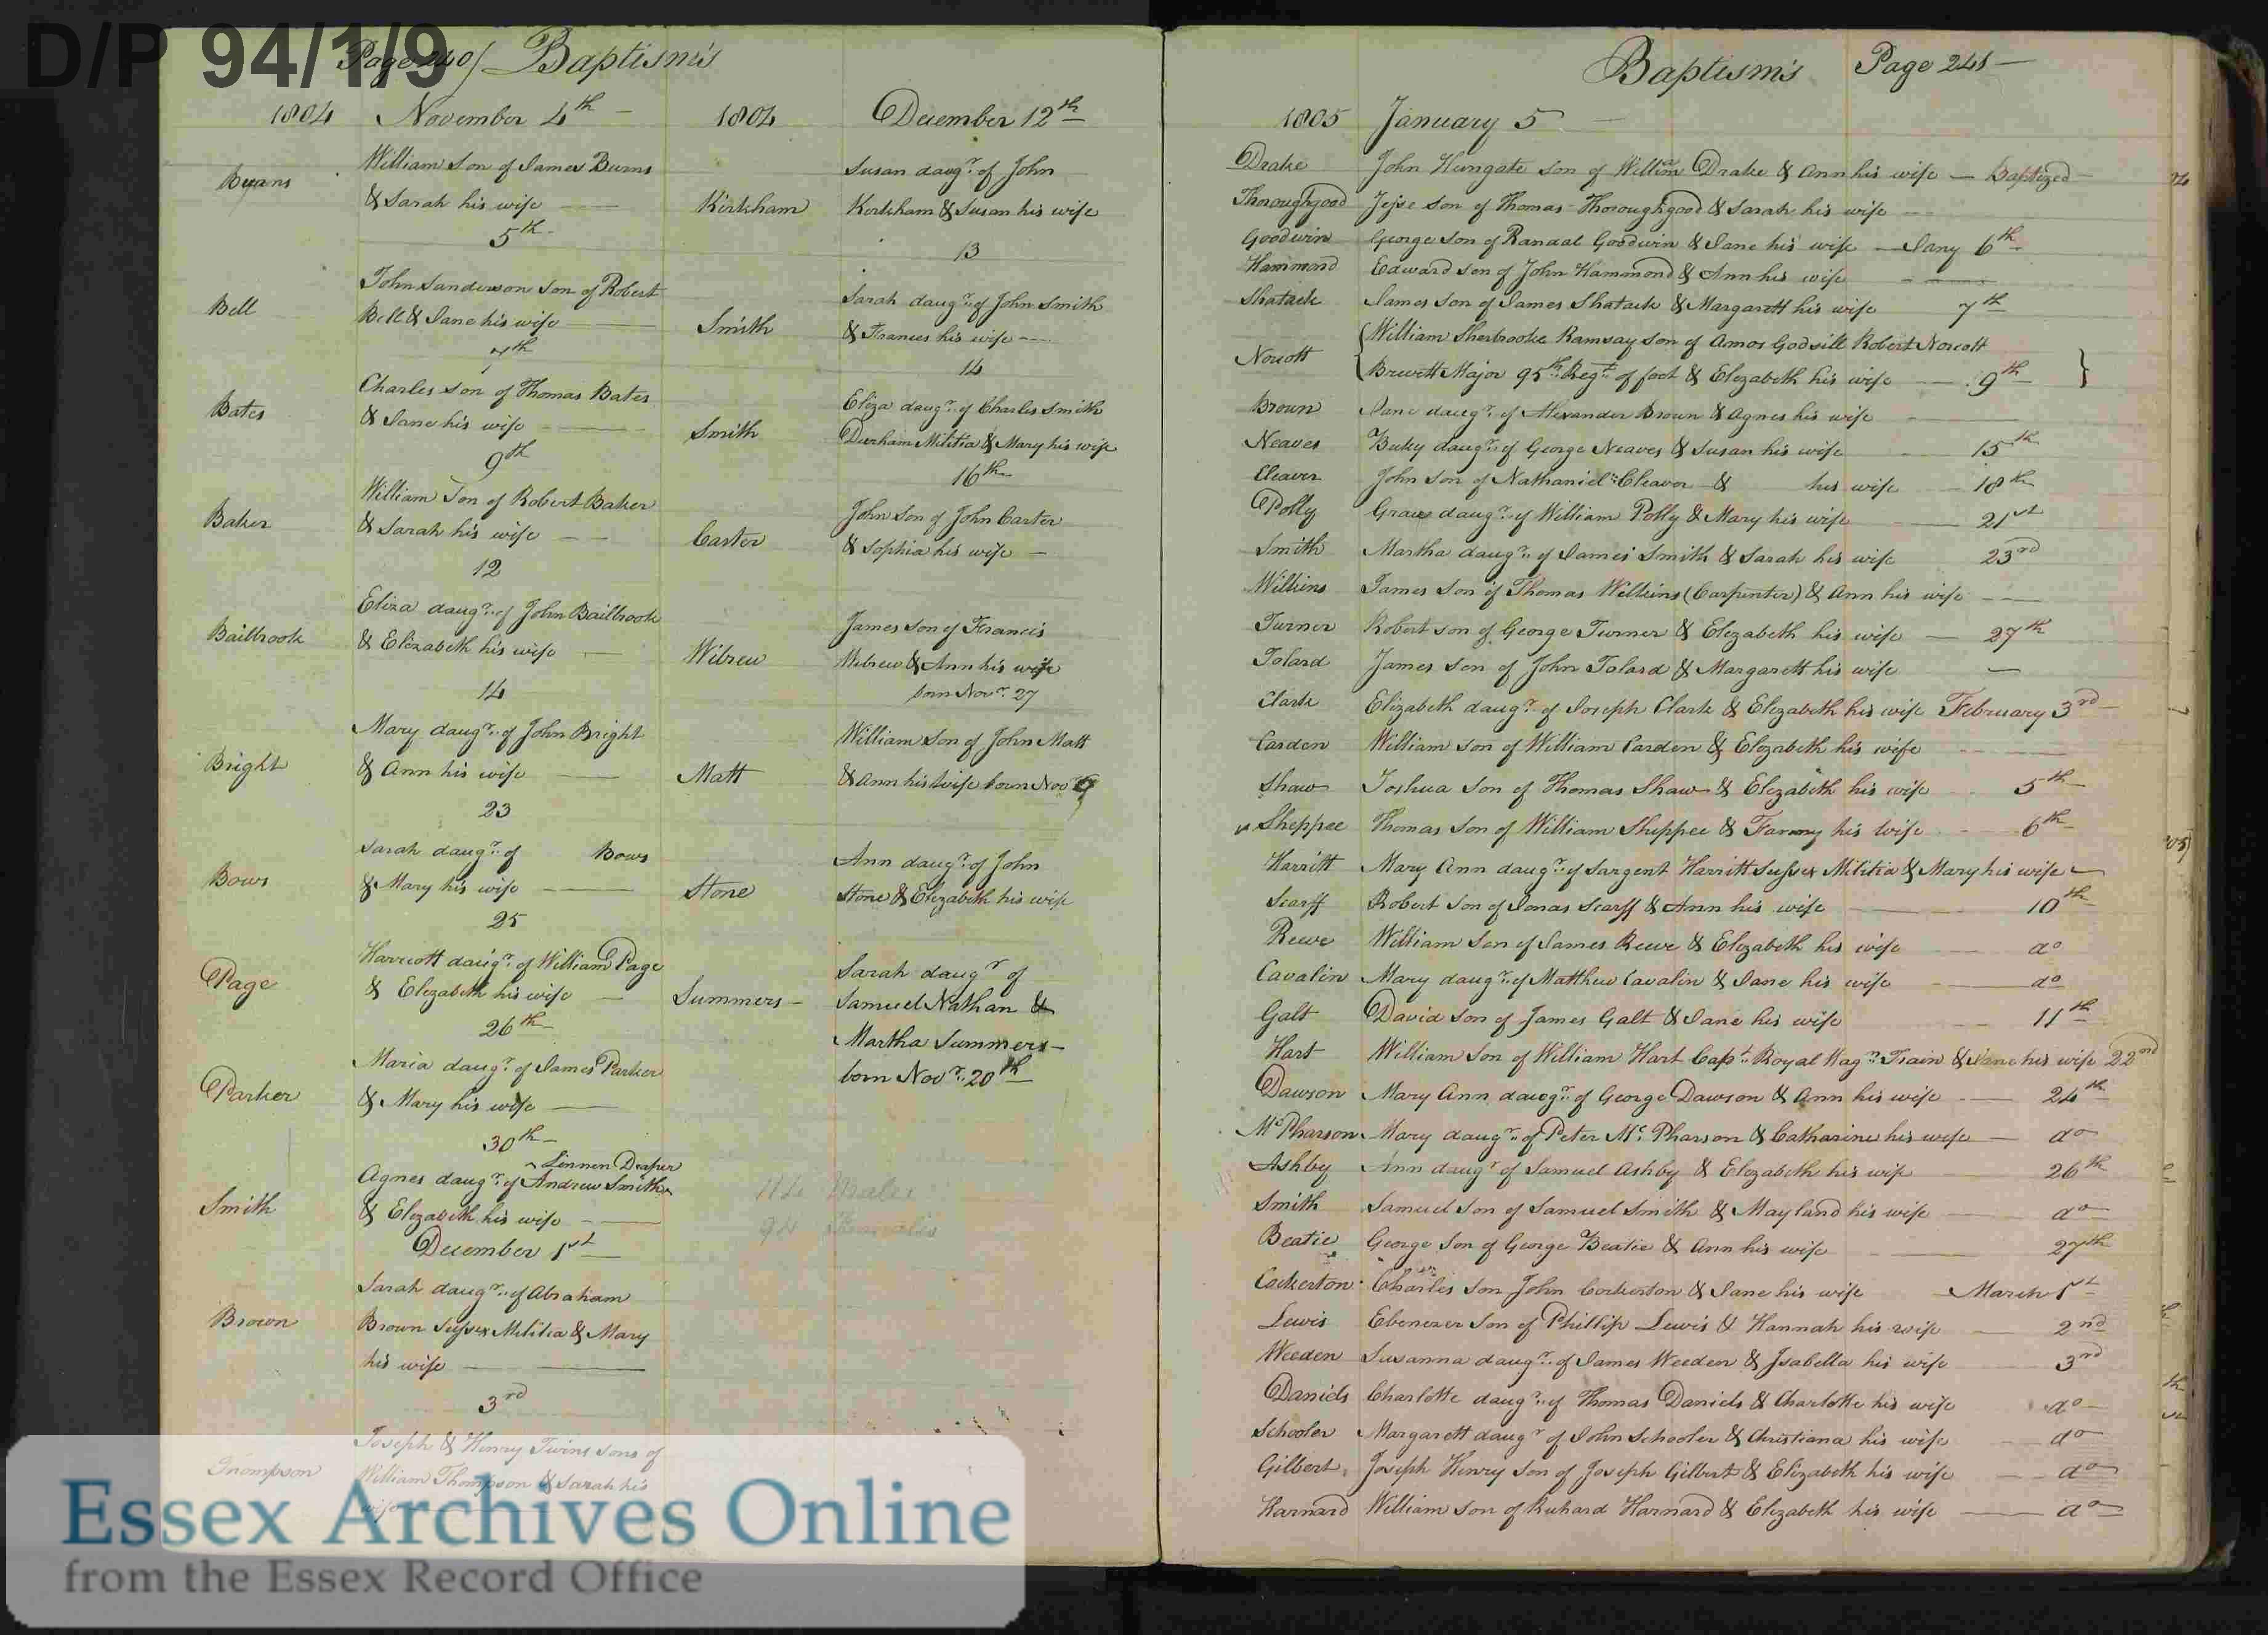 D/P 94/1/9
Page 240/ Baptism's
1804 November 4th
Burns
William Son of James Burns
& Sarah his wife
5th
Bell
John Sanderson Son of Robert
Bell & Jane his wife
7th
Bates
Charles Son of Thomas Bates
& Jane his wife
9th
Baker
William Son of Robert Baker
& Sarah his wife
12
Bailbrook
Eliza daugr. of John Bailbrook
& Elizabeth his wife
14
Bright
Mary daugr. of John Bright
& Ann his wife
23
Bows
Sarah daugr. of Bows
& Mary his wife
25
Page
Harriott daugr. of William Page
& Elizabeth his wife
26th
Parker
Maria daugr. of James Parker
& Mary his wife
30th
Linnen Draper
Smith
Agnes daugr. of Andrew Smith
& Elizabeth his wife
December 1st
Brown
Sarah daugr. of Abraham
Brown Sussex Militia & Mary
his wife
3rd
Thompson
Joseph & Henry Twins sons of
William Thompson & Sarah his
wife
1804 December 12th
Susan daugr. of John
Kirkham Kirkham & Susan his wife
13
Sarah daugr. of John Smith
Smith & Frances his wife
14
Eliza daugr. of Charles Smith
Smith Durham Militia & Mary his wife
16th
John Son of John Carter
Carter & Sophia his wife
James Son of Francis
Wibrew Wibrew & Ann his wife
born Novr. 27
William Son of John Matt
Matt & Ann his Wife born Novr 9
Ann daugr. of John
Stone Stone & Elizabeth his wife
Sarah daugr of
Summers Samuel Nathan &
Martha Summers
born Novr. 20th
114 Males
94 Females
Baptism's Page 241
1805 January 5
Drake John Hungate Son of Willim Drake & Ann his wife — baptized
Thoroughgood Jesse Son of Thomas Thoroughgood & Sarah his wife
Goodwin George Son of Randal Goodwin & Jane his wife — Jany 6th
Hammond Edward Son of John Hammond & Ann his wife
Shatack James Son of James Shatack & Margarett his wife 7th
William Sherbrooke Ramsay Son of Amos Godsill Robert Norcott
Norcott Brevett Major 95th Regt. of foot & Elizabeth his wife 9th
Brown Jane daugr. of Alexander Brown & Agnes his wife
Neaves daugr. of George Neaves & Susan his wife 15th
Cleaver John Son of Nathaniel Cleaver & his wife 18th
Polly Grace daugr. of William Polly & Mary his wife 21st
Smith Martha daugr. of James Smith & Sarah his wife 23rd
Wilkins James Son of Thomas Wilkins (Carpenter) & Ann his wife
Turner Robert Son of George Turner & Elizabeth his wife — 27th
Tolard James Son of John Tolard & Margarett his wife —
Clark Elizabeth daugr. of Joseph Clark & Elizabeth his wife February 3rd
Carden William Son of William Carden & Elizabeth his wife
Shaw Joshua Son of Thomas Shaw & Elizabeth his wife 5th
Sheppee Thomas Son of William Sheppee & Fanny his Wife 6th
Harritt Mary Ann daugr. of Sargent Harritt Sussex Militia & Mary his wife
Scarff Robert Son of Jonas Scarff & Ann his wife 10th
Reeve William Son of James Reeve & Elizabeth his wife do
Cavalin Mary daugr. of Matthew Cavalin & Jane his wife do
Galt David Son of James Galt & Jane his wife 11th
Hart William Son of William Hart Capt. Royal Wagn. Train & Jane his wife 22nd
Dawson Mary Ann daugr. of George Dawson & Ann his wife 24th
McPharson Mary daugr. of Peter Mc.Pharson & Catharine his wife — do
Ashby Ann daugr of Samuel Ashby & Elizabeth his wife 26th
Smith Samuel Son of Samuel Smith & Mayland his wife do
Beatie George Son of George Beatie & Ann his wife 27th
Cockerton Charles Son John Cockerton & Jane his wife March 1st
Lewis Ebenezer Son of Phillip Lewis & Hannah his wife 2nd
Weeden Susanna daugr. of James Weeden & Isabella his wife 3rd
Daniels Charlotte daugr. of Thomas Daniels & Charlotte his wife do
Schooler Margarett daugr of John Schooler & Christiana his wife do
Gilbert Joseph Henry Son of Joseph Gilbert & Elizabeth his wife do
Harnard William Son of Richard Harnard & Elizabeth his wife do
Essex Archives Online
from the Essex Record Office